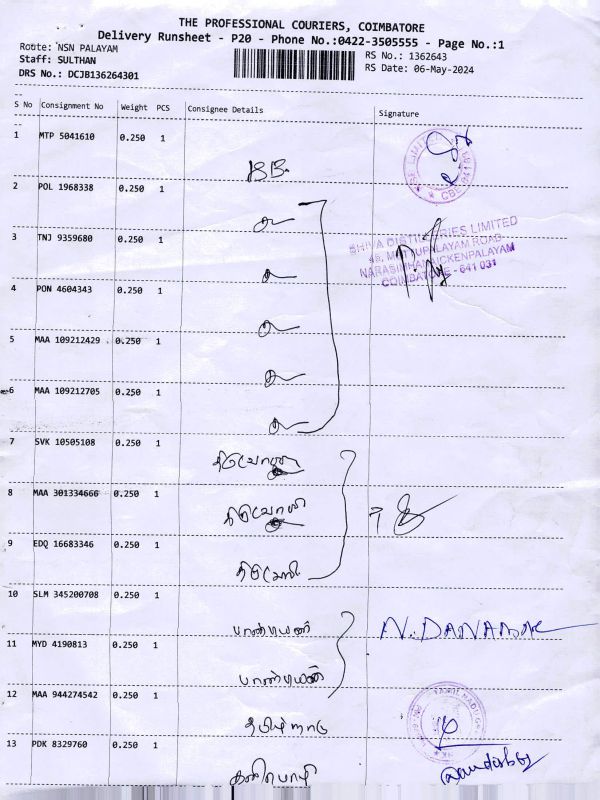 THE PROFESSIONAL COURIERS, COIMBATORE
Delivery Runsheet - P20 - Phone No.:0422-3505555 - Page No.:1
Route: NSN PALAYAM
RS No.: 1362643
Staff: SULTHAN
RS Date: 06-May-2024
DRS No.: DCJB136264301
S No Consignment No Weight PCS Consignee Details Signature
1 MTP 5041610 0.250 1
2 POL 1968338 0.250 1
3 TNJ 9359680 0.250 1
SHIVA DISTILLERIES LIMITED
49, METTUPALAYAM ROAD
NARASIMHANAICKENPALAYAM
COIMBATORE - 641 031
4 PON 4604343 0.250 1
5 MAA 109212429 0.250 1
6 MAA 109212705 0.250 1
7 SVK 10505108 0.250 1
8 MAA 301334666 0.250 1
9 EDQ 16683346 0.250 1
10 SLM 345200708 0.250 1
பாண்டியன் N.
11 MYD 4190813 0.250 1
பாண்டியன்
12 MAA 944274542 0.250 1
தமிழ்நாடு
13 PDK 8329760 0.250 1
கனிமொழி